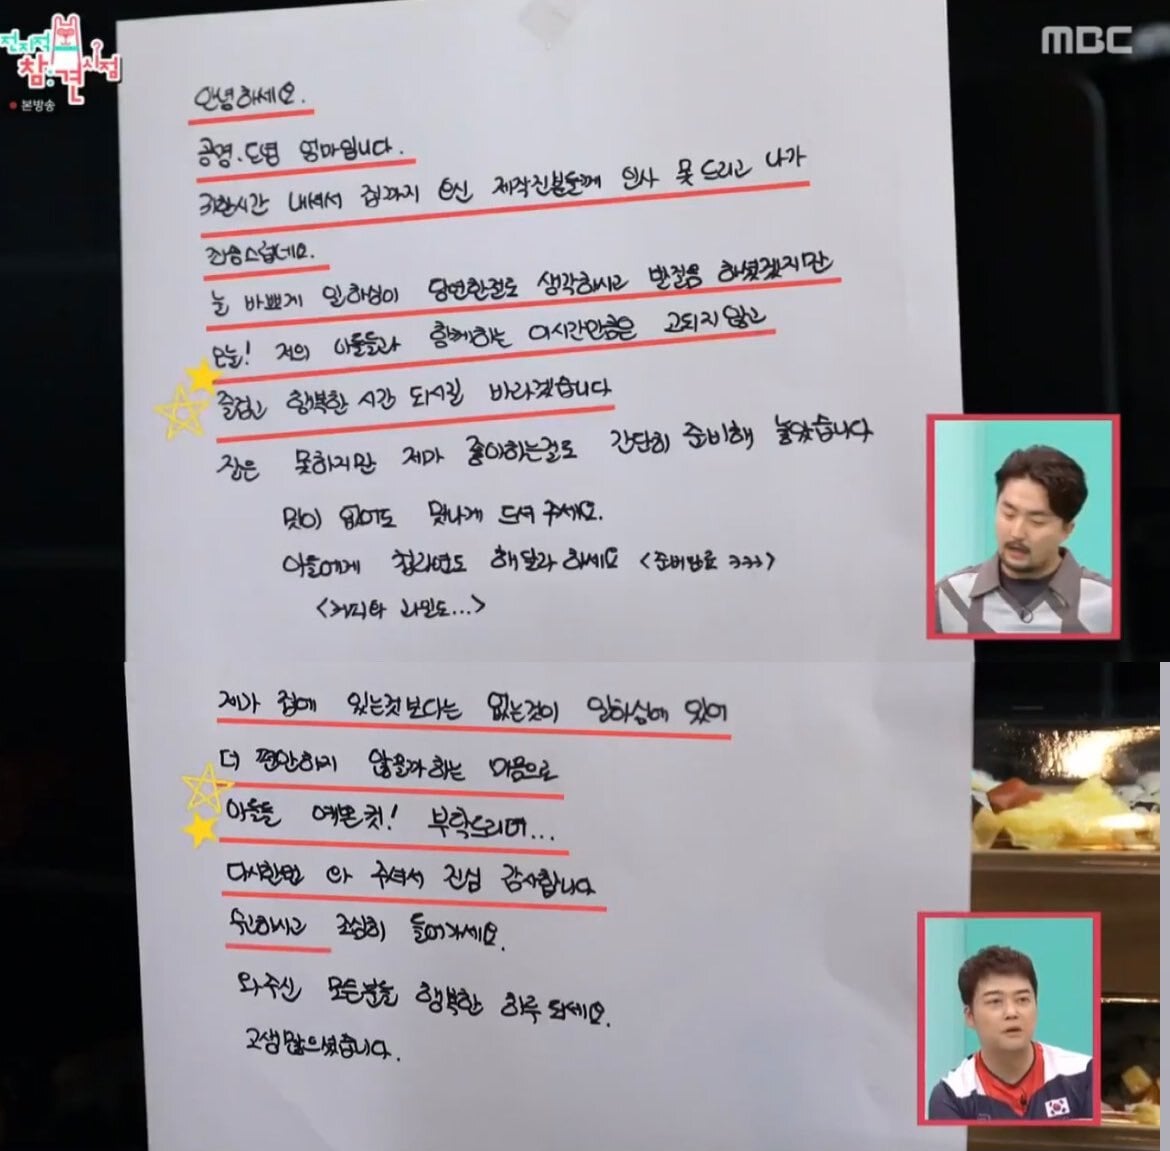 전지적
참견시점
본방송
MBC
안녕하세요.
공명.도영 엄마입니다.
귀한시간 내셔서 집까지 오신 제작진분들께 인사 못 드리고 나가
죄송스럽네요.
늘 바쁘게 일하심이 당연한걸로 생각하시고 발걸음 하셨겠지만
오늘! 저의 아들들과 함께하는 이시간만큼은 고되지 않고
즐겁고 행복한 시간 되시길 바라겠습니다
잘은 못하지만 제가 좋아하는걸로 간단히 준비해 놓았습니다
맛이 없어도 맛나게 드셔 주세요.
아들에게 짬라면도 해달라 하세요 <준비완료 ㅋㅋㅋ>
<커피와 라면도...>
제가 집에 있는것 보다는 없는것이 일하심에 있어
더 편안하지 않을까하는 마음으로
아들들 예쁜컷! 부탁드리며...
다시한번 와 주셔서 진심 감사합니다
수고하시고 조심히 들어가세요.
와주신 모든분들 행복한 하루 되세요.
고생많으셨습니다.